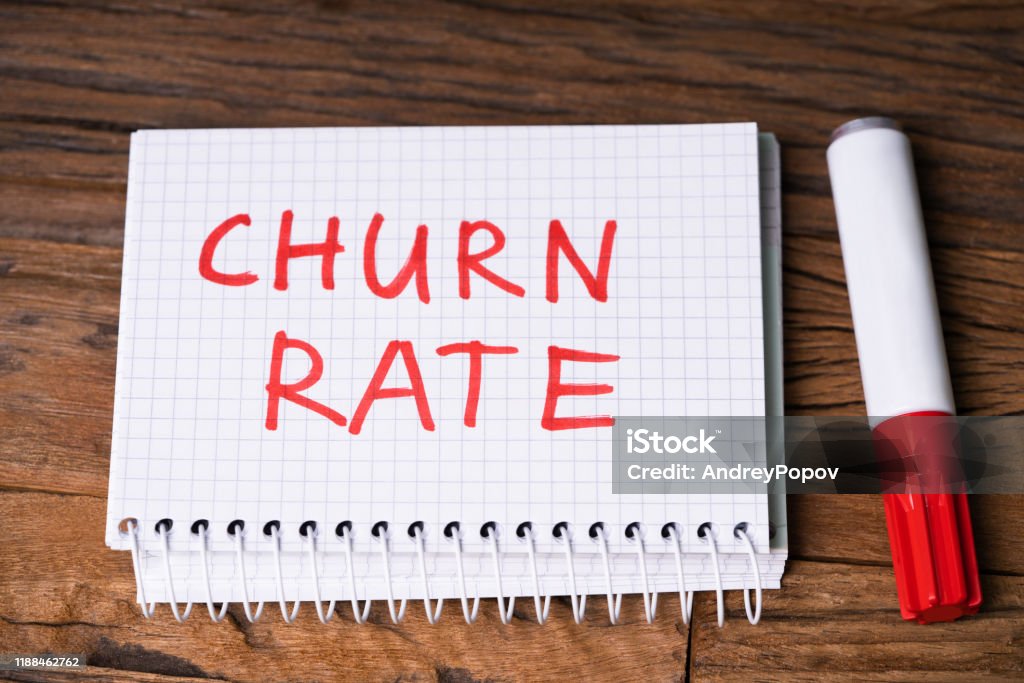 CHURN
RATE
iStock™
Credit: AndreyPopov
1188462762